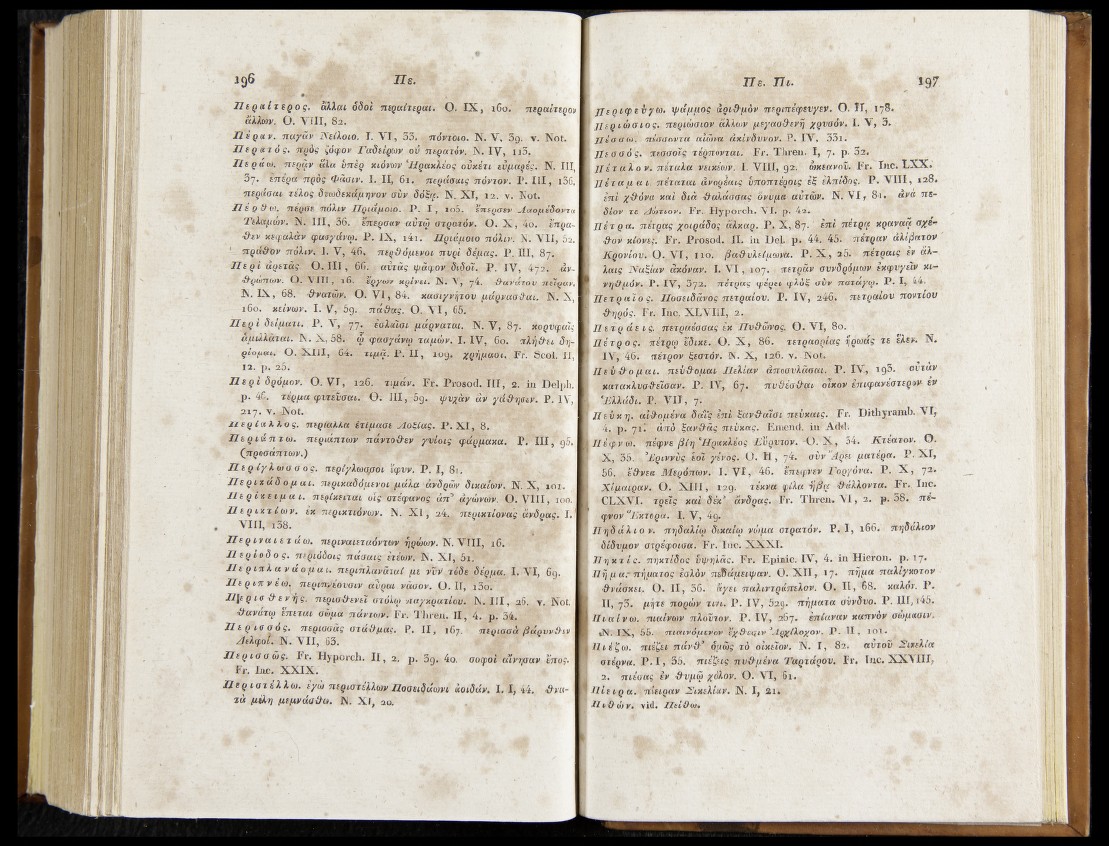 196 Πε.
Περαίτερος. ἄλλαι ὁδοὶ περαίτεραι. O. IX, 160. περαίτερον
ἄλλων. O. VIII, 82.
Πέραν. παγᾶν Νείλοιο. I. VI, 33. πόντοιο. N. V, 39. v. Not.
Περατός. πρὸς ζόφον Γαδείρων οὐ περατόν. N. IV, 113.
Περάω. περᾷν ἅλα ὑπὲρ κιόνων Ἡρακλέος οὐκέτι εὐμαρές. N. III,
37. ἐπέρα πρὸς Φᾶσιν. I. II, 61. περάσαις πόντον. P. III, 136.
περάσαι τέλος δυωδεκάμηνον σὺν δόξᾳ. N. XI, 12. v. Not.
Πέρθω. πέρσε πόλιν Πριάμοιο. P. I, 105. ἔπερσεν Λαομέδοντα
Τελαμών. N. III, 36. ἔπερσαν αὐτῷ στρατόν. O. X, 40. ἔπρα-
θεν κεφαλὰν φασγάνῳ. P. IX, 141. Πριάμοιο πόλιν. N. VII, 52.
πράθον πόλιν. I. V, 46. περθόμενοι πυρὶ δέμας. P. III, 87.
Περὶ ἀρετᾶς O. III, 66. αὐτᾶς ψᾶφον διδοῖ. P. IV, 472. ἀν-
θρώπων. O. VIII, 16. ἔργων κρίνει. N. V, 74. θανάτου πεῖραν.
N. IX, 68. θνατῶν. O. VI, 84. κασιγνήτου μάρνασθαι. N. X,
160. κείνων. I. V, 59. πάθας. O. VI, 65.
Περὶ δείματι. P. V, 77. ἐσλαῖσι μάρναται. N. V, 87. κορυφαῖς
ἁμιλλᾶται. N. X, 58. ᾧ φασγάνῳ ταμών. I. IV, 60. πλήθει δη-
ρίομαι. O. XIII, 64. τιμᾷ. P. II, 109. χρήμασι. Fr. Scol. II,
12. p. 25.
Περὶ δρόμον. O. VI, 126. τιμάν. Fr. Prosod. III, 2. in Delph.
p. 46. τέρμα φιτεῦσαι. O. III, 59. ψυχὰν ἂν γάθησεν. P. IV,
217. v. Not.
Περίαλλος. περίαλλα ἐτίμασε Λοξίας. P. XI, 8.
Περιάπτω. περιάπτων πάντοθεν γυίοις φάρμακα. P. III, 95.
(προσάπτων.)
Περίγλωσσος. περίγλωσσοι ἔφυν. P. I, 81.
Περικάδομαι. περικαδόμενοι μάλα ἀνδρῶν δικαίων. N. X, 101.
Περίκειμαι. περίκειται οἷς στέφανος ἀπ᾽ ἀγώνων. O. VIII, 100.
Περικτίων. ἐκ περικτιόνων. N. XI, 24. περικτίονας ἄνδρας. I.
VIII, 138.
Περιναιετάω. περιναιεταόντων ἡρώων. N. VIII, 16.
Περίοδος. περιόδοις πάσαις ἐτέων. N. XI, 51.
Περιπλανάομαι. περιπλανᾶταί με νῦν τόδε δέρμα. I. VI, 69.
Περιπνέω. περιπνέουσιν αὖραι νᾶσον. O. II, 130.
Περισθενής. περισθενεῖ στόλῳ παγκρατίου. N. III, 26. v. Not.
θανάτῳ ἕπεται σῶμα πάντων. Fr. Thren. II, 4. p. 34.
Περισσός. περισσᾶς στάθμας. P. II, 167. περισσὰ βάρυνθεν
Δελφοί. N. VII, 63.
Περισσῶς. Fr. Hyporch. II, 2. p. 39. 40. σοφοὶ αἴνησαν ἔπος.
Fr. Inc. XXIX.
Περιστέλλω. ἐγὼ περιστέλλων Ποσειδάωνι ἀοιδάν. I. I, 44. θνα-
τὰ μέλη μεμνάσθω. N. XI, 20.
Πε. Πι. 197
Περιφεύγω. ψάμμος ἀριθμὸν περιπέφευγεν. O. II, 178.
Περιώσιος. περιώσιον ἄλλων μεγασθενῆ χρυσόν. I. V, 3.
Πέσσω. πέσσοντα αἰῶνα ἀκίνδυνον. P. IV, 331.
Πεσσός. πεσσοῖς τέρπονται. Fr. Thren. I, 7. p. 32.
Πέταλον. πέταλα νεικέων. I. VIII, 92. ὠκεανοῦ. Fr. Inc. LXX.
Πέταμαι. πέταται ἀνορέαις ὑποπτέροις ἐξ ἐλπίδος. P. VIII, 128.
ἐπὶ χθόνα καὶ διὰ θαλάσσας ὄνυμα αὐτῶν. N. VI, 81. ἀνὰ πε-
δίον τε Δώτιον. Fr. Hyporch. VI. p. 42.
Πέτρα. πέτρας χοιράδος ἄλκαρ. P. X, 87. ἐπὶ πέτρᾳ κραναᾷ σχέ-
θον κίονες. Fr. Prosod. II. in Del. p. 44. 45. πέτραν ἀλίβατον
Κρονίου. O. VI, 110. βαθυλείμωνα. P. X, 25. πέτραις ἐν ἄλ-
λαις Ναξίαν ἀκόναν. I. VI, 107. πετρᾶν συνδρόμων ἐκφυγεῖν κι-
νηθμόν. P. IV, 372. πέτρας φέρει φλὸξ σὺν πατάγῳ. P. I, 44.
Πετραῖος. Ποσειδᾶνος πετραίου. P. IV, 246. πετραίου ποντίου
θηρός. Fr. Inc. XLVIII, 2.
Πετράεις. πετραέσσας ἐκ Πυθῶνος. O. VI, 80.
Πέτρος. πέτρῳ ἔδικε. O. X, 86. τετραορίας ἡρωάς τε ἕλεν. N.
IV, 46. πέτρον ξεστόν. N. X, 126. v. Not.
Πεύθομαι. πεύθομαι Πελίαν ἀποσυλᾶσαι. P. IV, 193. αὐτὰν
κατακλυσθεῖσαν. P. IV, 67. πυθέσθαι οἶκον ἐπιφανέστερον ἐν
Ἑλλάδι. P. VII, 7.
Πεύκη. αἰθομένα δαῒς ἐπὶ ξανθαῖσι πεύκαις. Fr. Dithyramb. VI,
4. p. 71. ἀπὸ ξανθᾶς πεύκας. Emend. in Add.
Πέφνω. πέφνε βίη Ἡρακλέος Εὔρυτον. O. X, 34. Κτέατον. O.
X, 35. Ἐριννὺς ἑοῖ γένος. O. II, 74. σὺν Ἄρει ματέρα. P. XI,
56. ἔθνεα Μερόπων. I. VI, 46. ἔπεφνεν Γοργόνα. P. X, 72.
Χίμαιραν. O. XIII, 129. τέκνα φίλα ἥβᾳ θάλλοντα. Fr. Inc.
CLXVI. τρεῖς καὶ δέκ᾽ ἄνδρας. Fr. Thren. VI, 2. p. 38. πέ-
φνον Ἕκτορα. I. V, 49.
Πηδάλιον. πηδαλίῳ δικαίῳ νώμα στρατόν. P. I, 166. πηδάλιον
δίδυμον στρέφοισα. Fr. Inc. XXXI.
Πηκτίς. πηκτίδος ὑψηλᾶς. Fr. Epinic. IV, 4. in Hieron. p. 17.
Πῆμα. πήματος ἐσλὸν πεδάμειψαν. O. XII, 17. πῆμα παλίγκοτον
θνάσκει. O. II, 36. ἄγει παλιντράπελον. O. II, 68. καλόν. P.
II, 73. μήτε πορὼν τινι. P. IV, 529. πήματα σύνδυο. P. III, 145.
Πιαίνω. πιαίνων πλοῦτον. P. IV, 267. ἐπίαναν καπνὸν σώμασιν.
N. IX, 55. πιαινόμενον ἔχθεσιν Ἀρχίλοχον. P. II, 101.
Πιέζω. πιέζει πάνθ᾽ ὁμῶς τὸ οἰκεῖον. N. I, 82. αὐτοῦ Σικελία
στέρνα. P. I, 35. πιέζεις πυθμένα Ταρτάρου. Fr. Inc. XXVIII,
2. πιέσαις ἐν θυμῷ χόλον. O. VI, 61.
Πίειρα. πίειραν Σικελίαν. N. I, 21.
Πιθών. vid. Πείθω.